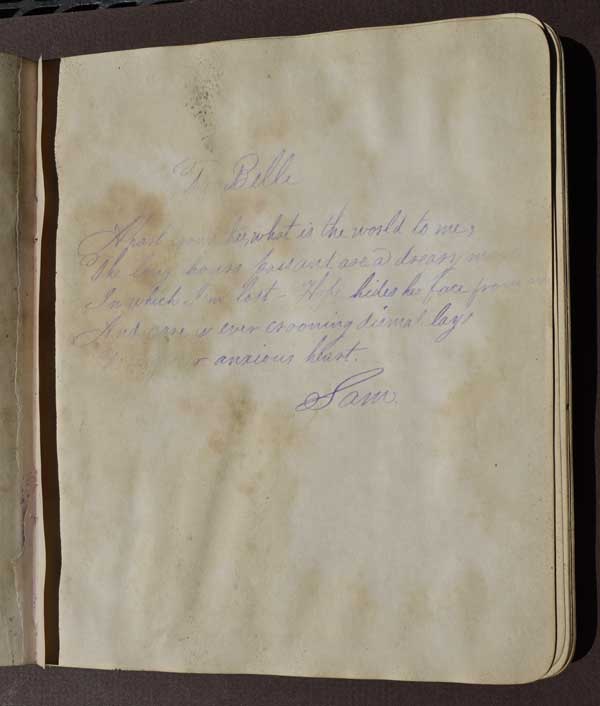 To Belle
Apart from her, what is the world to me,
The long hours pass and are a dream
In which I'm lost - Hope hides her face from
And care is ever crooning dismal lays
anxious heart.
Sam.